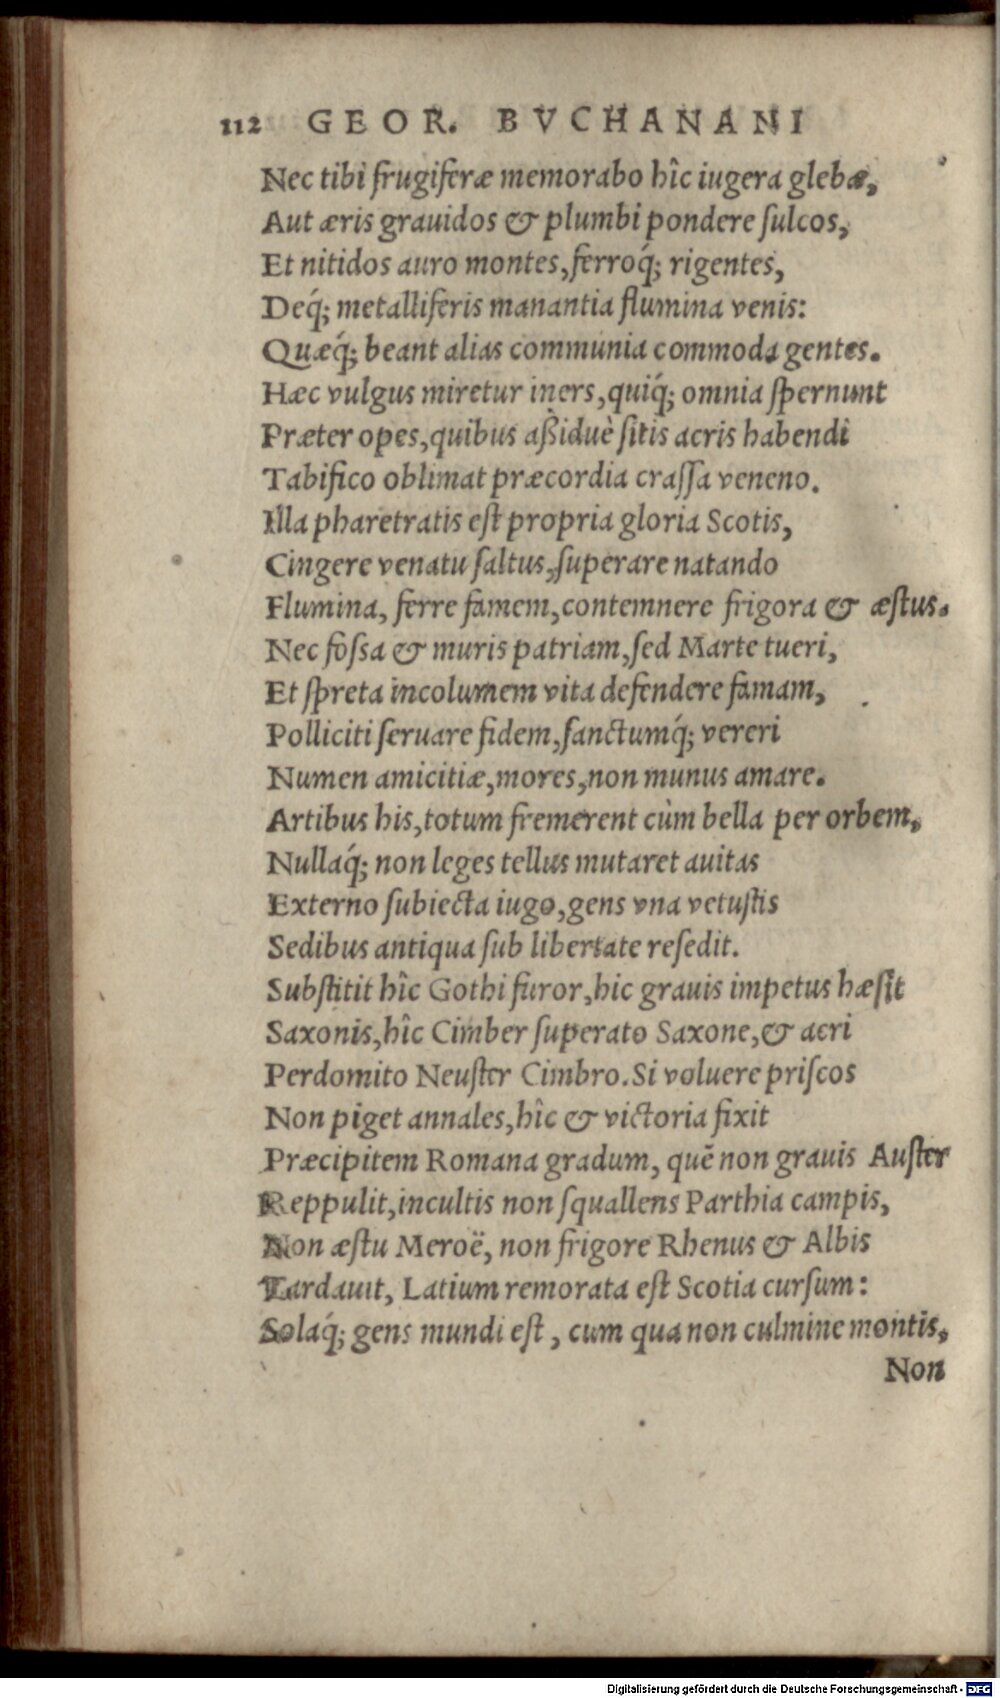 112 GEOR. BVCHANANI
Nec tibi frugiferæ memorabo hîc iugera glebæ,
Aut æris grauidos & plumbi pondere ſulcos,
Et nitidos auro montes, ferroq́; rigentes,
Deq́; metalliferis manantia flumina venis:
Quæq́; beant alias communia commoda gentes.
Hæc vulgus miretur iners, quiq́; omnia ſpernunt
Præter opes, quibus aßiduè ſitis acris habendi
Tabifico oblimat præcordia craſſa veneno.
Illa pharetratis eſt propria gloria Scotis,
Cingere venatu ſaltus, ſuperare natando
Flumina, ferre famem, contemnere frigora & æſtus.
Nec foſſa & muris patriam, ſed Marte tueri,
Et ſpreta incolumem vita defendere famam,
Polliciti ſeruare fidem, ſanctumq́; vereri
Numen amicitiæ, mores, non munus amare.
Artibus his, totum fremerent cùm bella per orbem,
Nullaq́; non leges tellus mutaret auitas
Externo ſubiecta iugo, gens vna vetuſtis
Sedibus antiqua ſub libertate reſedit.
Subſtitit hîc Gothi furor, hic grauis impetus hæſit
Saxonis, hîc Cimber ſuperato Saxone, & acri
Perdomito Neuſter Cimbro. Si voluere priſcos
Non piget annales, hîc & victoria fixit
Præcipitem Romana gradum, quẽ non grauis Auſter
Reppulit, incultis non ſquallens Parthia campis,
Non æſtu Meroë, non frigore Rhenus & Albis
Tardauit, Latium remorata eſt Scotia curſum:
Solaq́; gens mundi eſt, cum qua non culmine montis,
Non
Digitalisierung gefördert durch die Deutsche Forschungsgemeinschaft - DFG